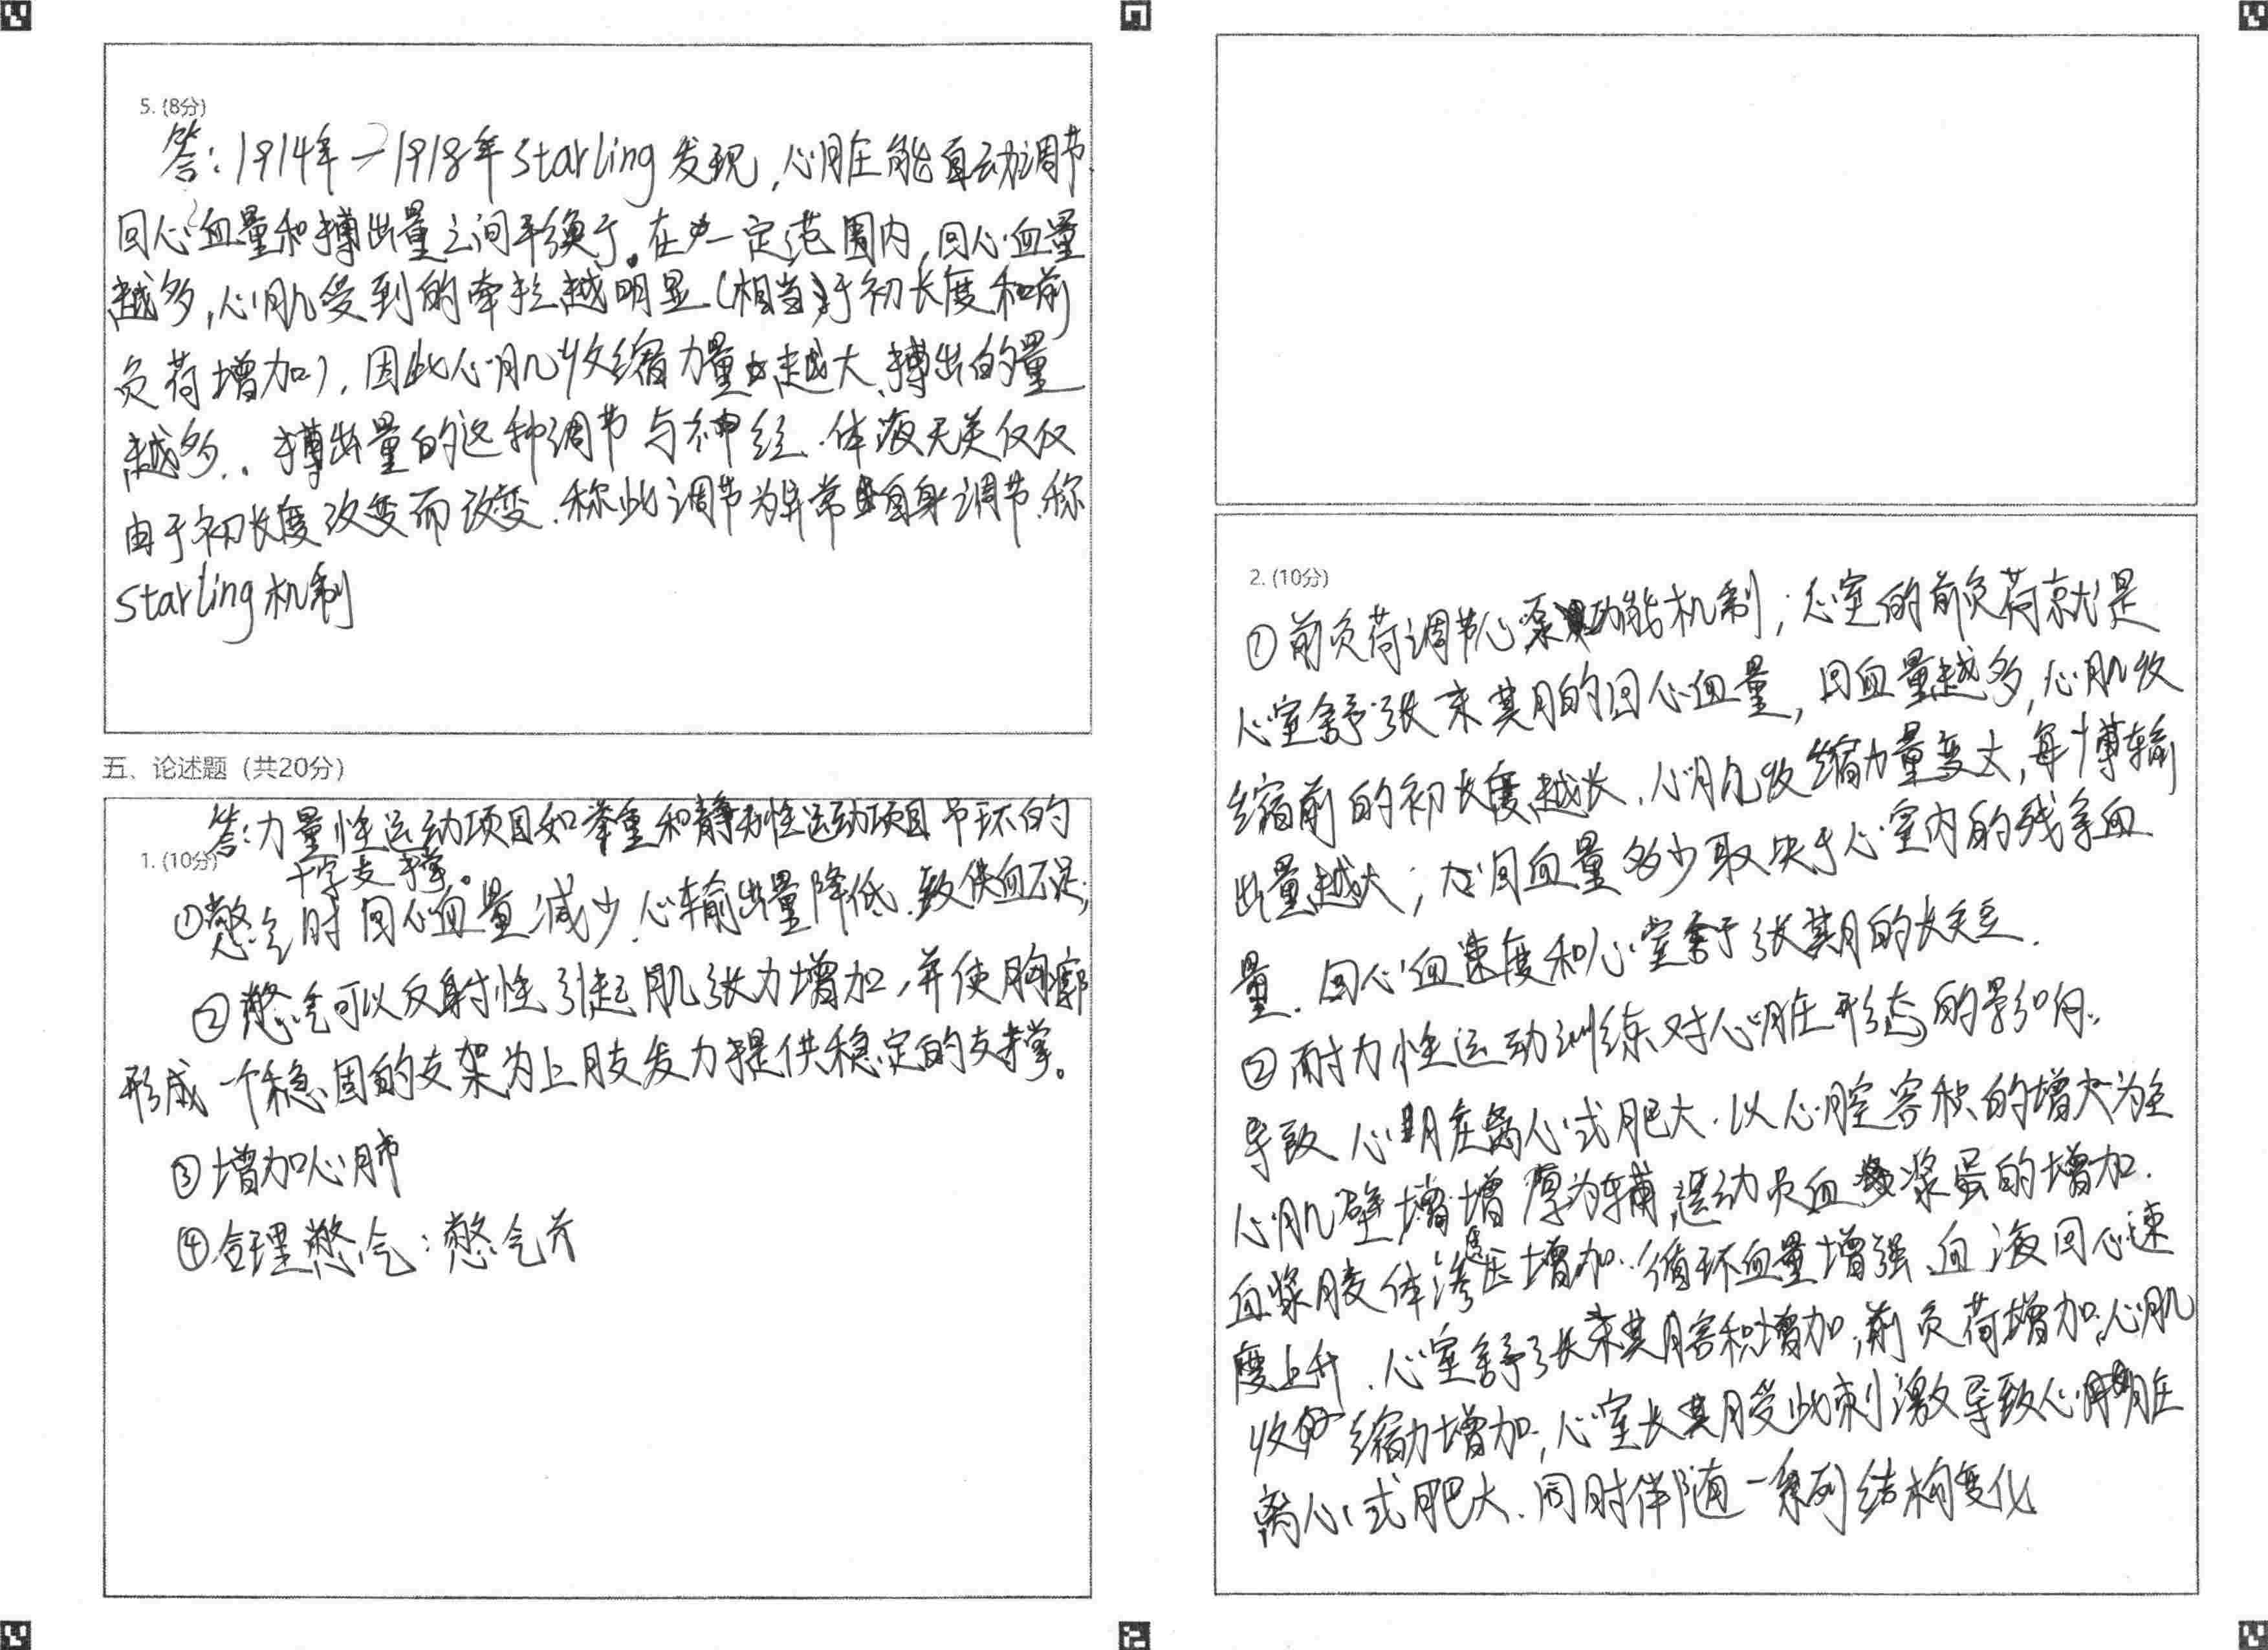 5. (8分)
答:1914年—1918年Starling发现,心脏能自动调节
回心血量和搏出量之间平衡。在一定范围内,回心血量
越多,心肌受到的牵拉越明显(相当于初长度和前
负荷增加),因此心肌收缩力量越大、搏出的量
越多.。搏出量的这种调节与神经、体液无关仅仅
由于初长度改变而改变.称此调节为异常自身调节.称
Starling机制
五、论述题(共20分)
答:力量性运动项目如举重和静力性运动项目吊环的
1. (10分)
十字支撑。
①憋气时回心血量减少.心输出量降低.致供血不足;
②憋气可以反射性引起肌张力增加,并使胸廓
形成一个稳固的支架为上肢发力提供稳定的支撑。
③增加心肺
④合理憋气:憋气并
2. (10分)
①前负荷调节心泵功能机制;心室的前负荷就是
心室舒张末期的回心血量,回血量越多,心肌收
缩前的初长度越长.心肌收缩力量变大,每搏输
出量越大;回血量多少取决于心室内的残余血
量.回心血速度和心室舒张期的长短.
②耐力性运动训练对心脏形态的影响.
导致心脏离心式肥大.以心腔容积的增大为主
心肌壁增厚为辅,运动员血浆蛋的增加.
血浆胶体渗透压增加.循环血量增强.血液回心速
度上升.心室舒张末期容积增加,前负荷增加,心肌
收缩力增加,心室长期受此刺激导致心脏
离心式肥大.同时伴随一系列结构变化